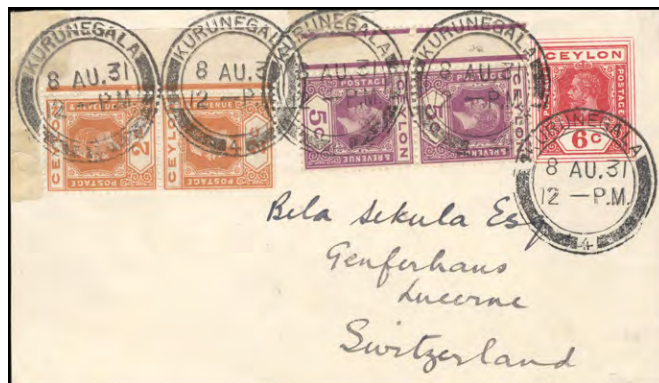 KURUNEGALA
8 AU.31
12 — P.M.
KURUNEGALA
8 AU.31
12 — P.M.
KURUNEGALA
8 AU.31
12 — P.M.
KURUNEGALA
8 AU.31
12 — P.M.
CEYLON
POSTAGE
& REVENUE
2c
CEYLON
POSTAGE
& REVENUE
5c
POSTAGE
& REVENUE
CEYLON
5c
POSTAGE
& REVENUE
CEYLON
CEYLON
POSTAGE
6c
KURUNEGALA
8 AU.31
12 — P.M.
4
Bela Sekula Esq
Genferhaus
Lucerne
Switzerland